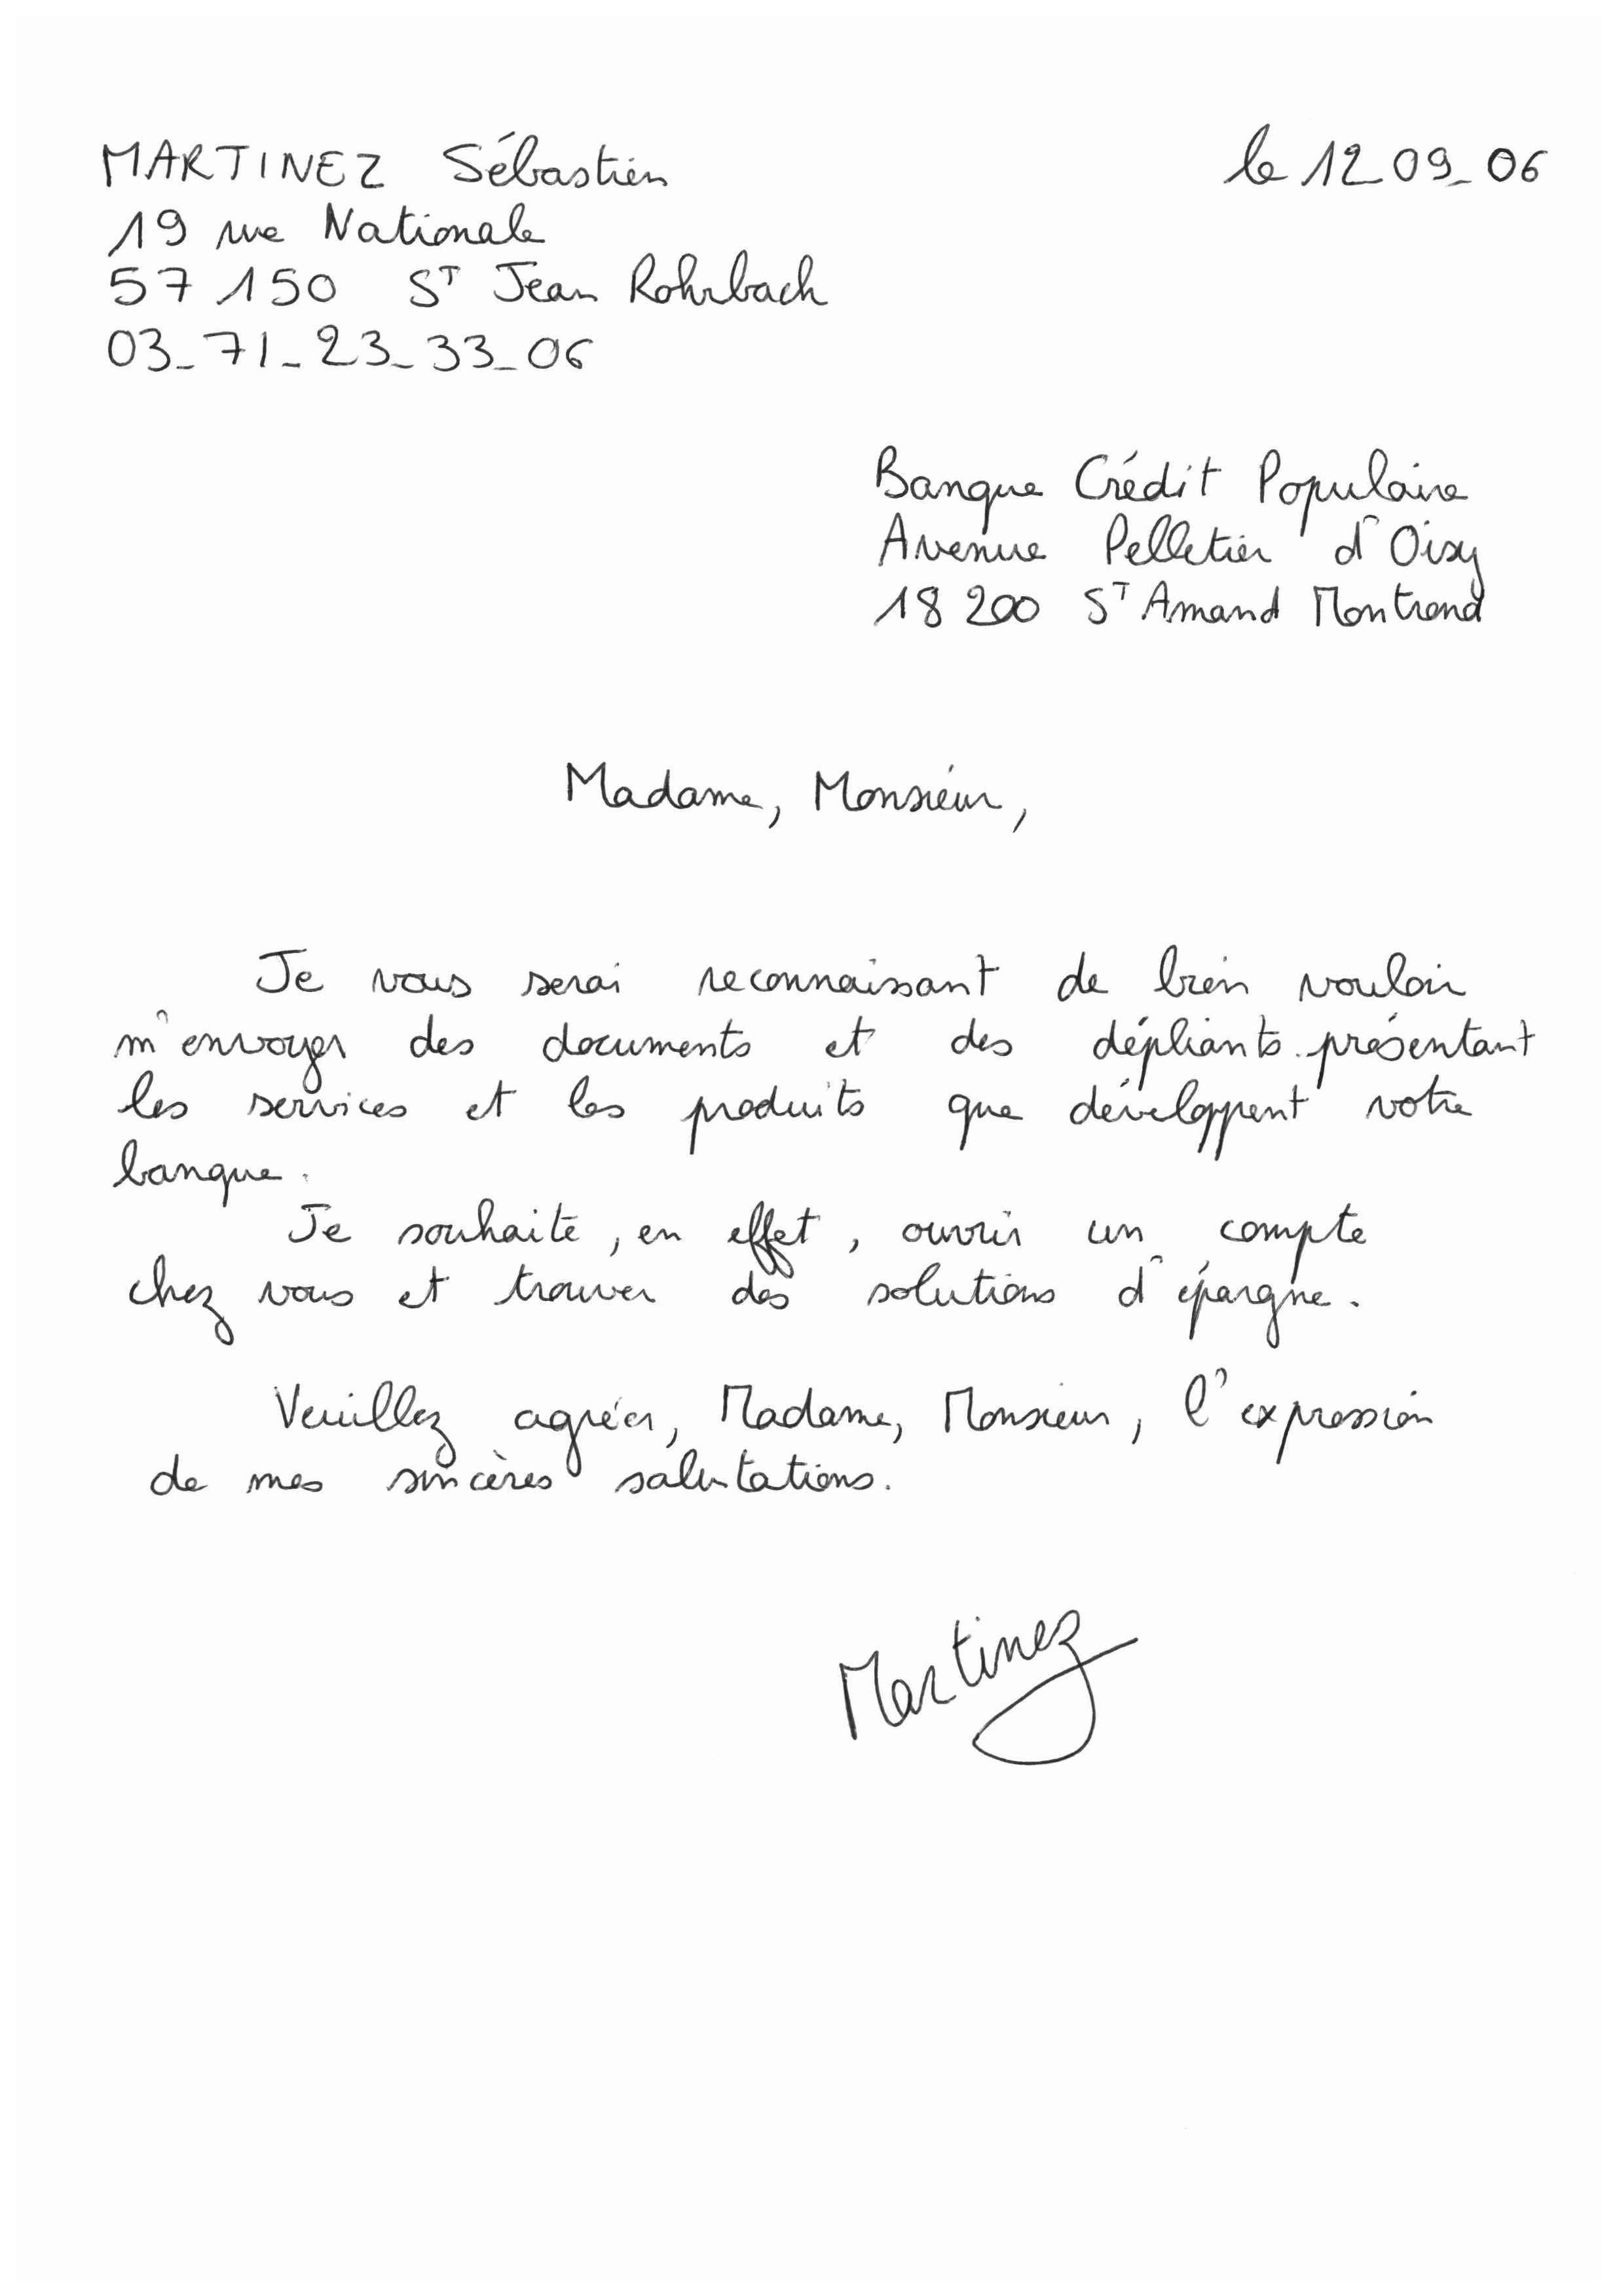 MARTINEZ Sébastien
le 12_09_06
19 rue Nationale
57 150 ST Jean Rohrbach
03_71_23_33_06
Banque Crédit Populaire
Avenue Pelletier d'Oisy
18 200 ST Amand Montrond
Madame, Monsieur,
Je vous serai reconnaissant de bien vouloir
m'envoyer des documents et des dépliants présentant
les services et les produits que développent votre
banque.
Je souhaite, en effet, ouvrir un compte
chez vous et trouver des solutions d'épargne.
Veuillez agréer, Madame, Monsieur, l'expression
de mes sincères salutations.
Martinez